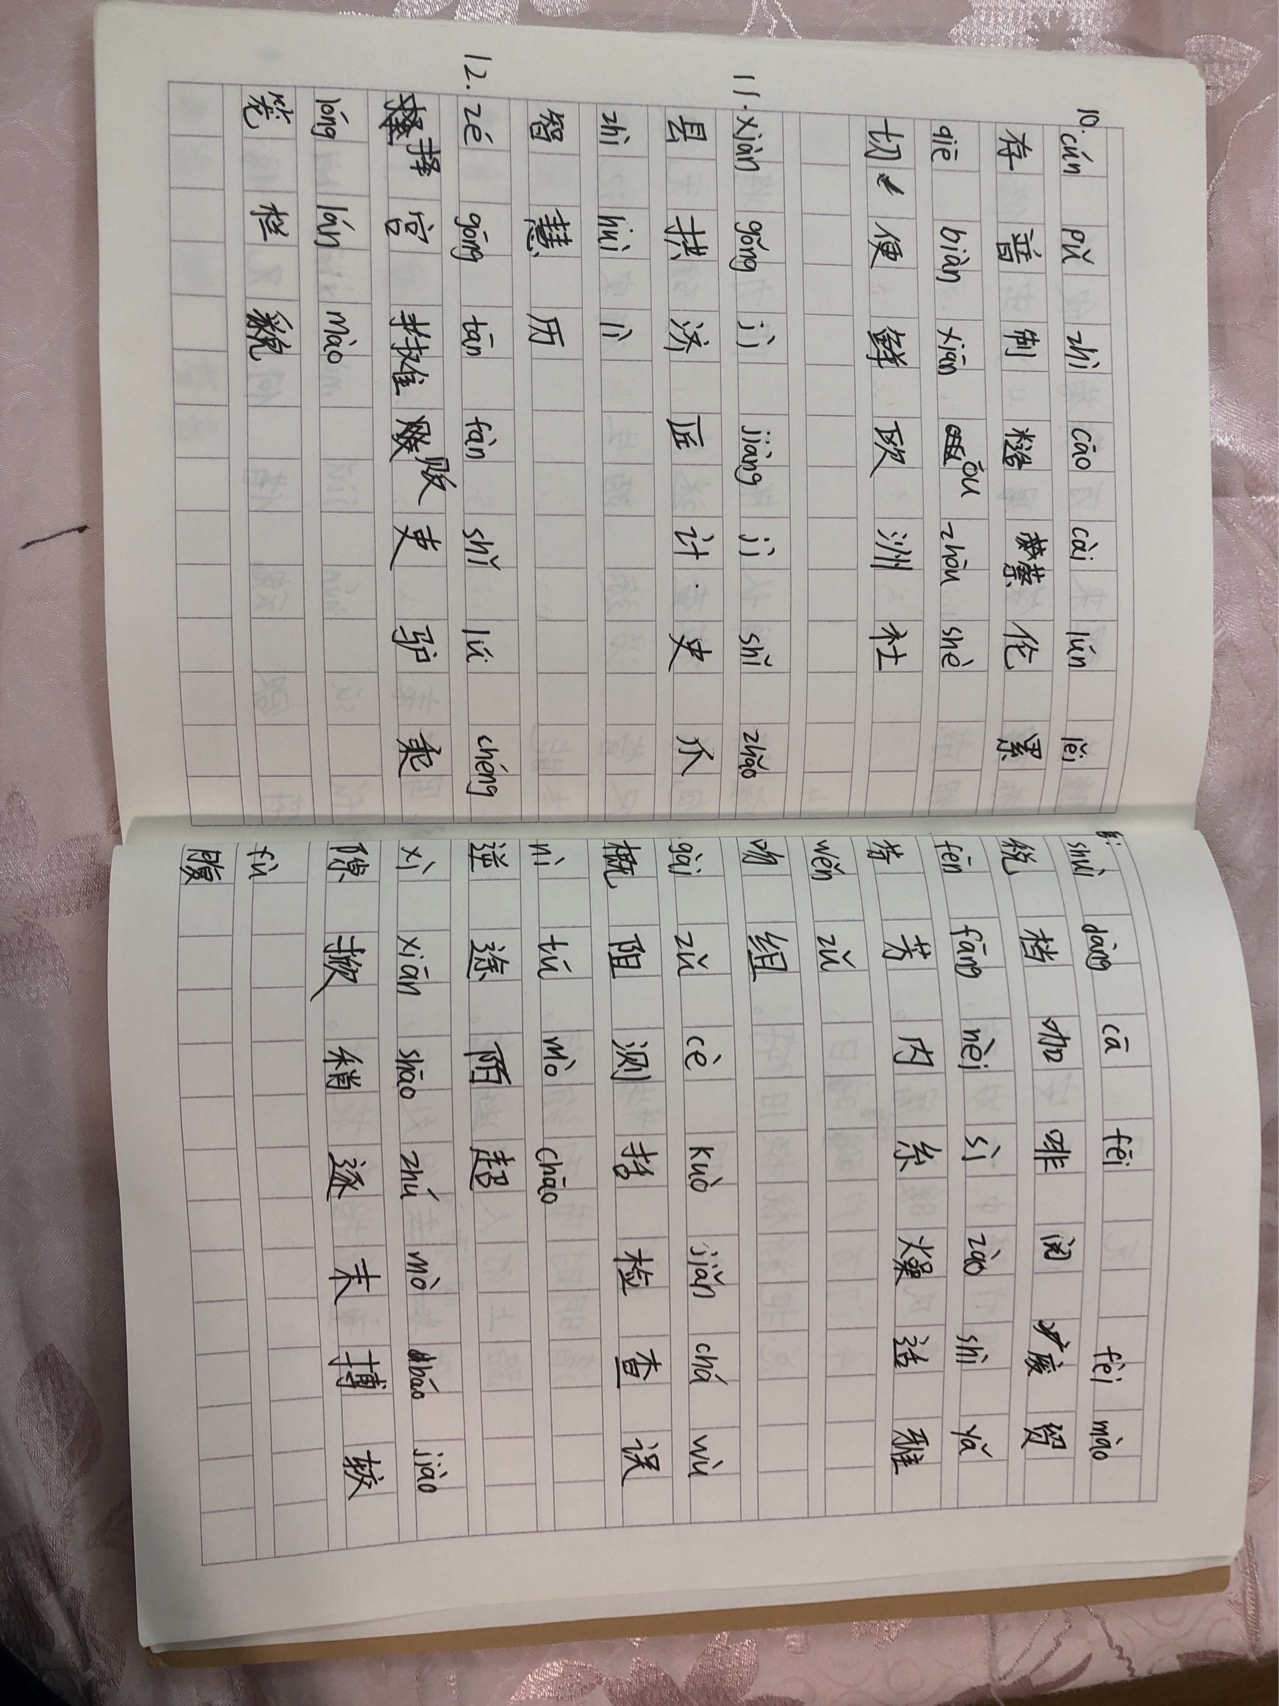 10. cún pǔ zhì cāo cài lún lěi
存 普 制 糙 蔡 伦 累
qiē biàn xiān ōu zhōu shè
切 便 鲜 欧 洲 社
11. xiàn gǒng jì jiàng jì shǐ zhǎo
县 拱 济 匠 计 史 爪
zhì huì lì
智 慧 历
12. zé gōng tān fàn shǐ lǘ chéng
择 宫 摊 贩 吏 驴 乘
lóng lán mào
笼 栏 貌
shuì dàng cā fēi fèi mào
税 档 咖 啡 阅 废 贸
fēn fāng nèi sì zào shì yǎ
芳 内 燥 适 雅
wěn zǔ
吻 组
gài zǔ cè kuò jiǎn chá wù
概 阻 测 括 检 查 误
nì tú mò chāo
逆 途 陌 超
xì xiān shāo zhú mò bó jiào
隙 掀 稍 逐 末 博 较
fù
腹